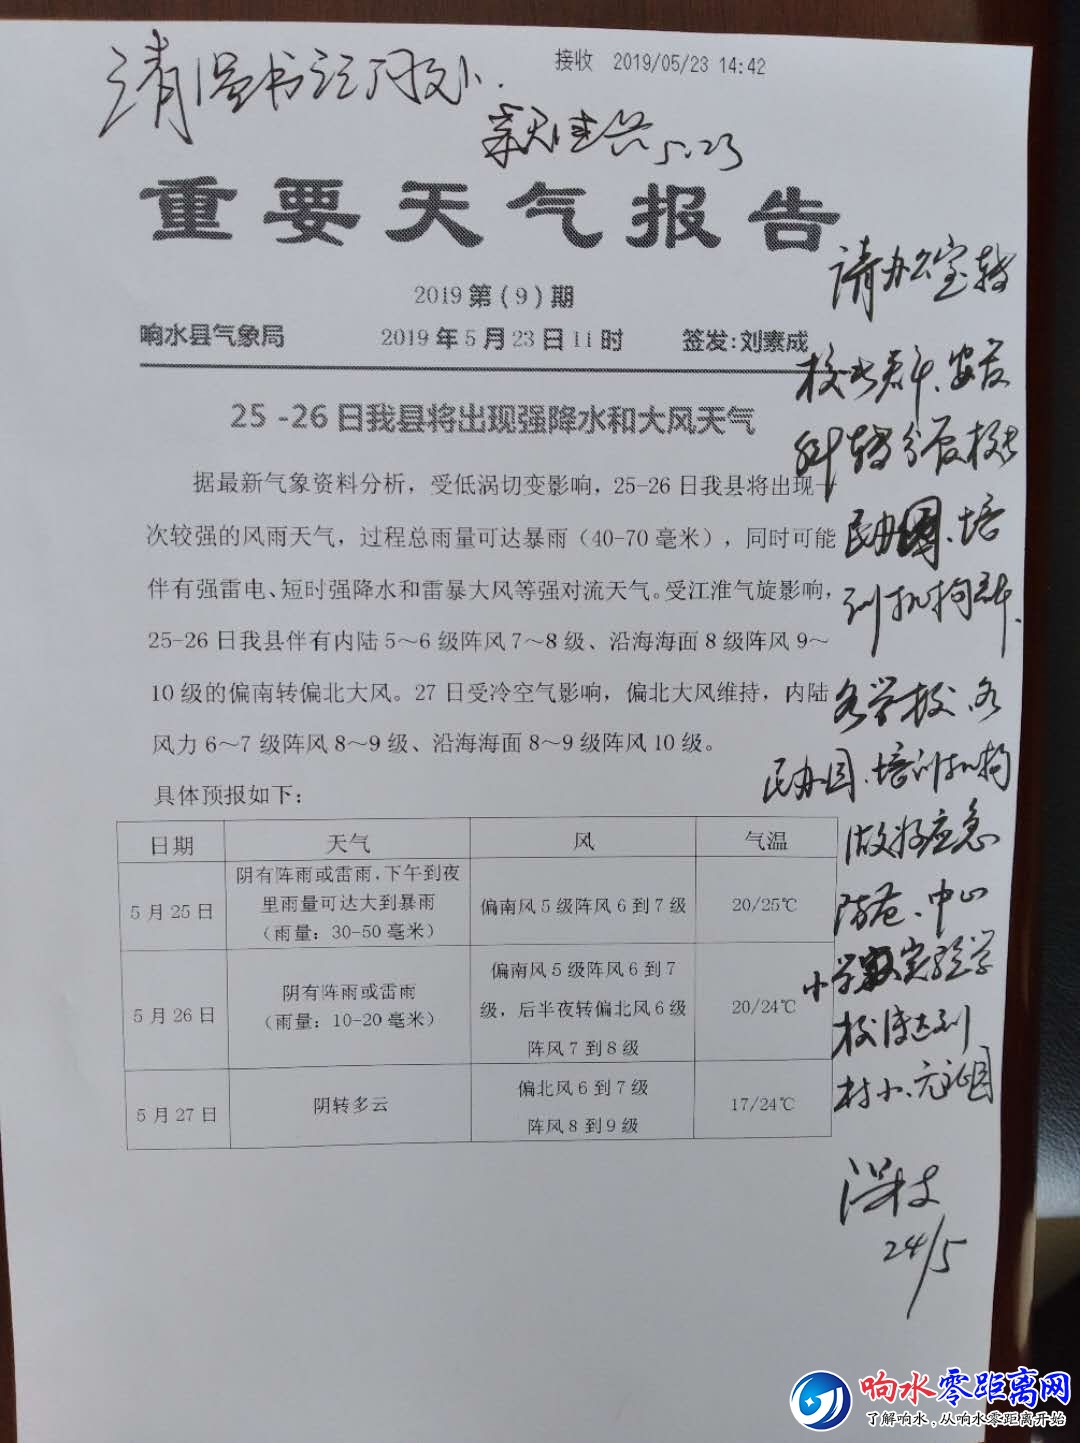 接收 2019/05/23 14:42
请温书记阅示.
5.23
重要天气报告
2019第(9)期
响水县气象局 2019年5月23日11时 签发:刘素成
25-26日我县将出现强降水和大风天气
据最新气象资料分析，受低涡切变影响，25-26日我县将出现一
次较强的风雨天气，过程总雨量可达暴雨（40-70毫米），同时可能
伴有强雷电、短时强降水和雷暴大风等强对流天气。受江淮气旋影响，
25-26日我县伴有内陆5～6级阵风7～8级、沿海海面8级阵风9～
10级的偏南转偏北大风。27日受冷空气影响，偏北大风维持，内陆
风力6～7级阵风8～9级、沿海海面8～9级阵风10级。
具体预报如下：
日期 天气 风 气温
5月25日 阴有阵雨或雷雨,下午到夜
里雨量可达大到暴雨
（雨量：30-50毫米） 偏南风5级阵风6到7级 20/25℃
5月26日 阴有阵雨或雷雨
（雨量：10-20毫米） 偏南风5级阵风6到7
级，后半夜转偏北风6级
阵风7到8级 20/24℃
5月27日 阴转多云 偏北风6到7级
阵风8到9级 17/24℃
请办公室转
校长群、安发
科转分管校长
民办园、培
训机构群.
各学校、各
民办园、培训机构
做好应急
防范、中心
小学 实验学
校传达到
村小、
24/5
响水零距离网
了解响水，从响水零距离开始